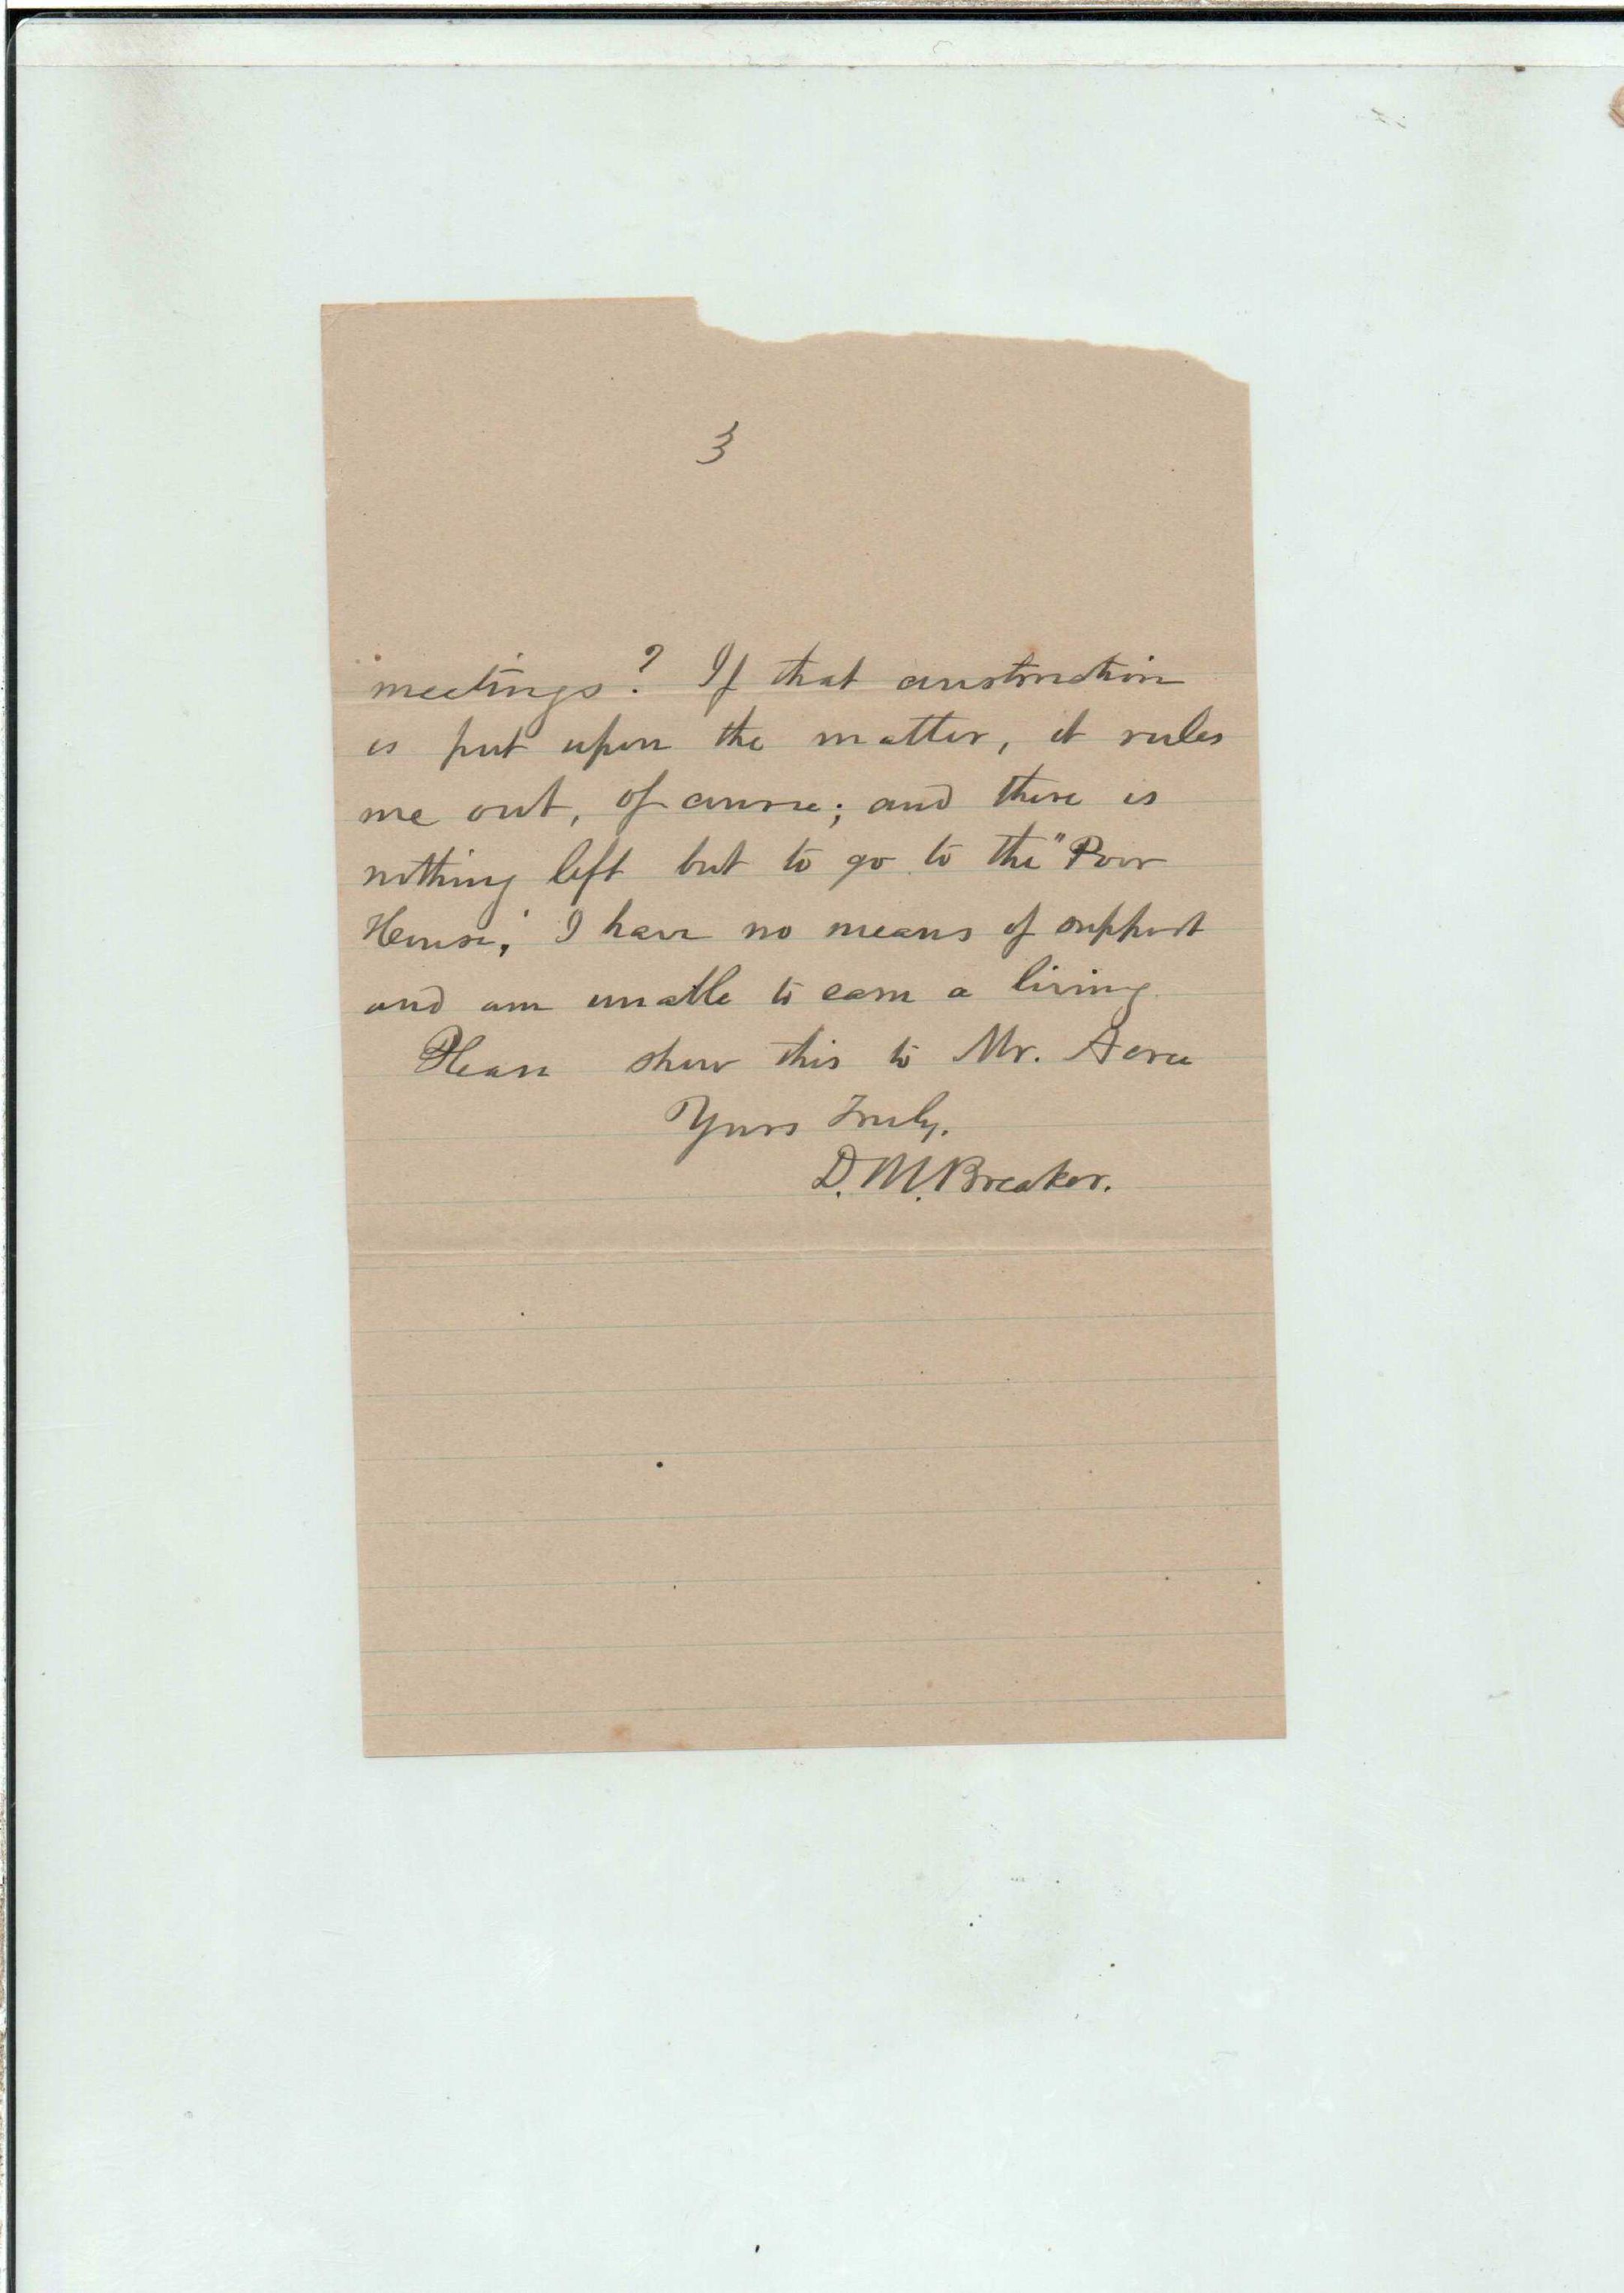 3
meetings? If that construction
is put upon the matter, it rules
me out, of course; and there is
nothing left but to go to the "Poor
House," I have no means of support
and am unable to earn a living.
Please show this to Mr. Acree
Yours Truly,
D. M. Breaker.